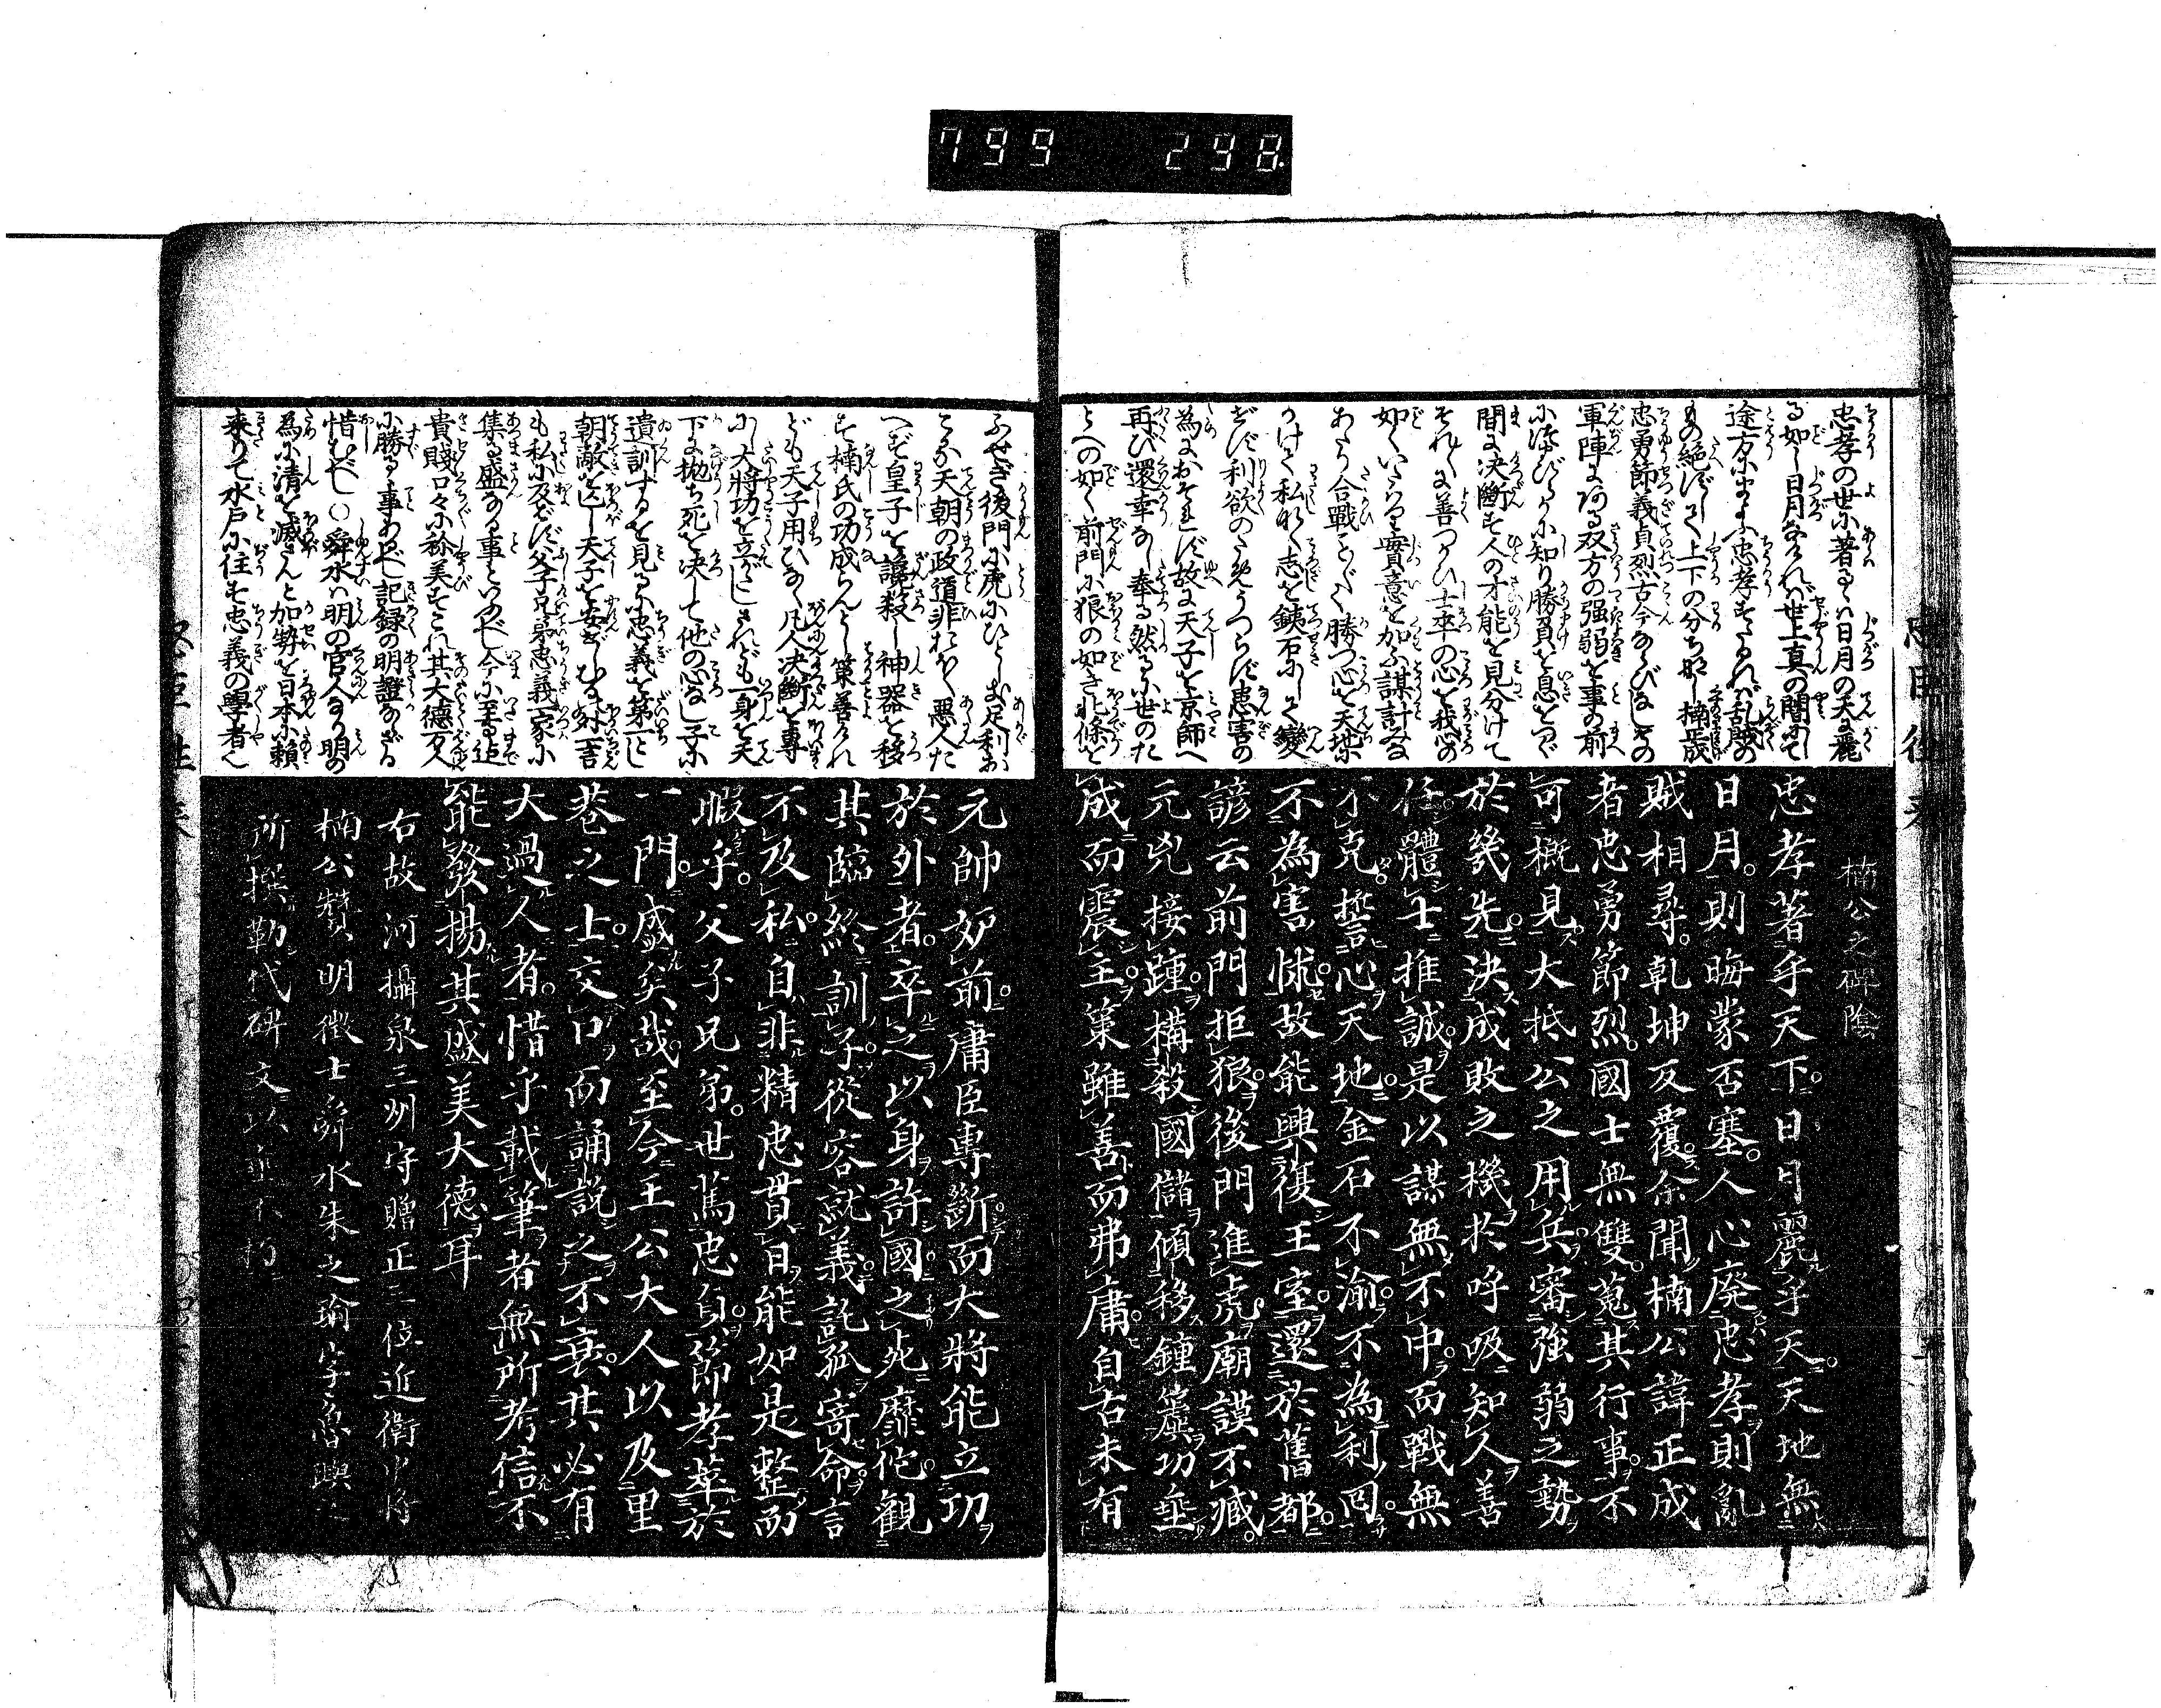 799 298
忠孝の世に著るゝハ日月の天に麗
る如し日月なけれバ世上真の闇にて
途方にまよふ忠孝すたるれバ乱賊の
もの絶ずして上下の分ち無し楠正成
忠勇節義貞烈古今ならびなしその
軍陣に河る双方の强弱を事の前
間に決断す人の才能を見分けて
それ〳〵に善つかひ士卒の心を我心の
如くいたハり實意を加ふ謀計みな
あたり合戰ことごとく勝つ心を天地に
かけて私なく志を鉄石にして變
ぜず利欲のためうつらず患害の
為におそれず故に天子を京師へ
再び還幸なし奉る然るに世のた
とへの如く前門に狼の如き北條を
楠公之碑陰
忠孝著乎天下日月麗乎天天地無
日月則晦蒙否塞人心廢忠孝則亂
賊相尋乾坤反覆余聞楠公諱正成
者忠勇節烈國士無雙蒐其行事不
可概見大抵公之用兵審強弱之勢
於幾先決成敗之機於呼吸知人善
任體士推誠是以謀無不中而戰無
不克誓心天地金石不渝不為利囘
不為害怵故能興復王室還於舊都
諺云前門拒狼後門進虎廟謨不臧
元兇接踵構殺國儲傾移鐘簴功垂
成而震主策雖善而弗庸自古未有
ふせぎ後門に虎にひとしき足利お
こる天朝の政道非にして悪人た
へず皇子を讒殺し神器を移
す楠氏の功成らんとし策善けれ
ども天子用ひなく凡人決断を專
にし大將功を立がたしされども一身を天
下に抛ち死を决して他の心なし子に
遺訓するを見るに忠義を第一とし
朝敵を亡し天子を安ぎむる对一言
も私に及ばず父子兄弟忠義一家に
集る盛なる事といふべし今に至る迄
貴賤口々に称美すこれ其大德万人
に勝る事あるべし記録の明證なきを
惜むべし○舜水ハ明の官人なり明の
為に清を滅さんと加勢を日本に頼
来りて水戸に住す忠義の學者也
元帥妒前庸臣專斷而大將能立功
於外者卒之以身許國之死靡佗觀
其臨終訓子從容就義託孤寄命言
不及私自非精忠貫日能如是整而
暇乎父子兄弟世篤忠貞節孝萃於
一門盛矣哉至今王公大人以及里
巷之士交口而誦說之不衰其必有
大過人者惜乎載筆者無所考信不
能發揚其盛美大德耳
右故河攝泉三州守贈正三位近衛中將
楠公贊明徵士舜水朱之瑜字魯璵之
所撰勒代碑文以垂不朽